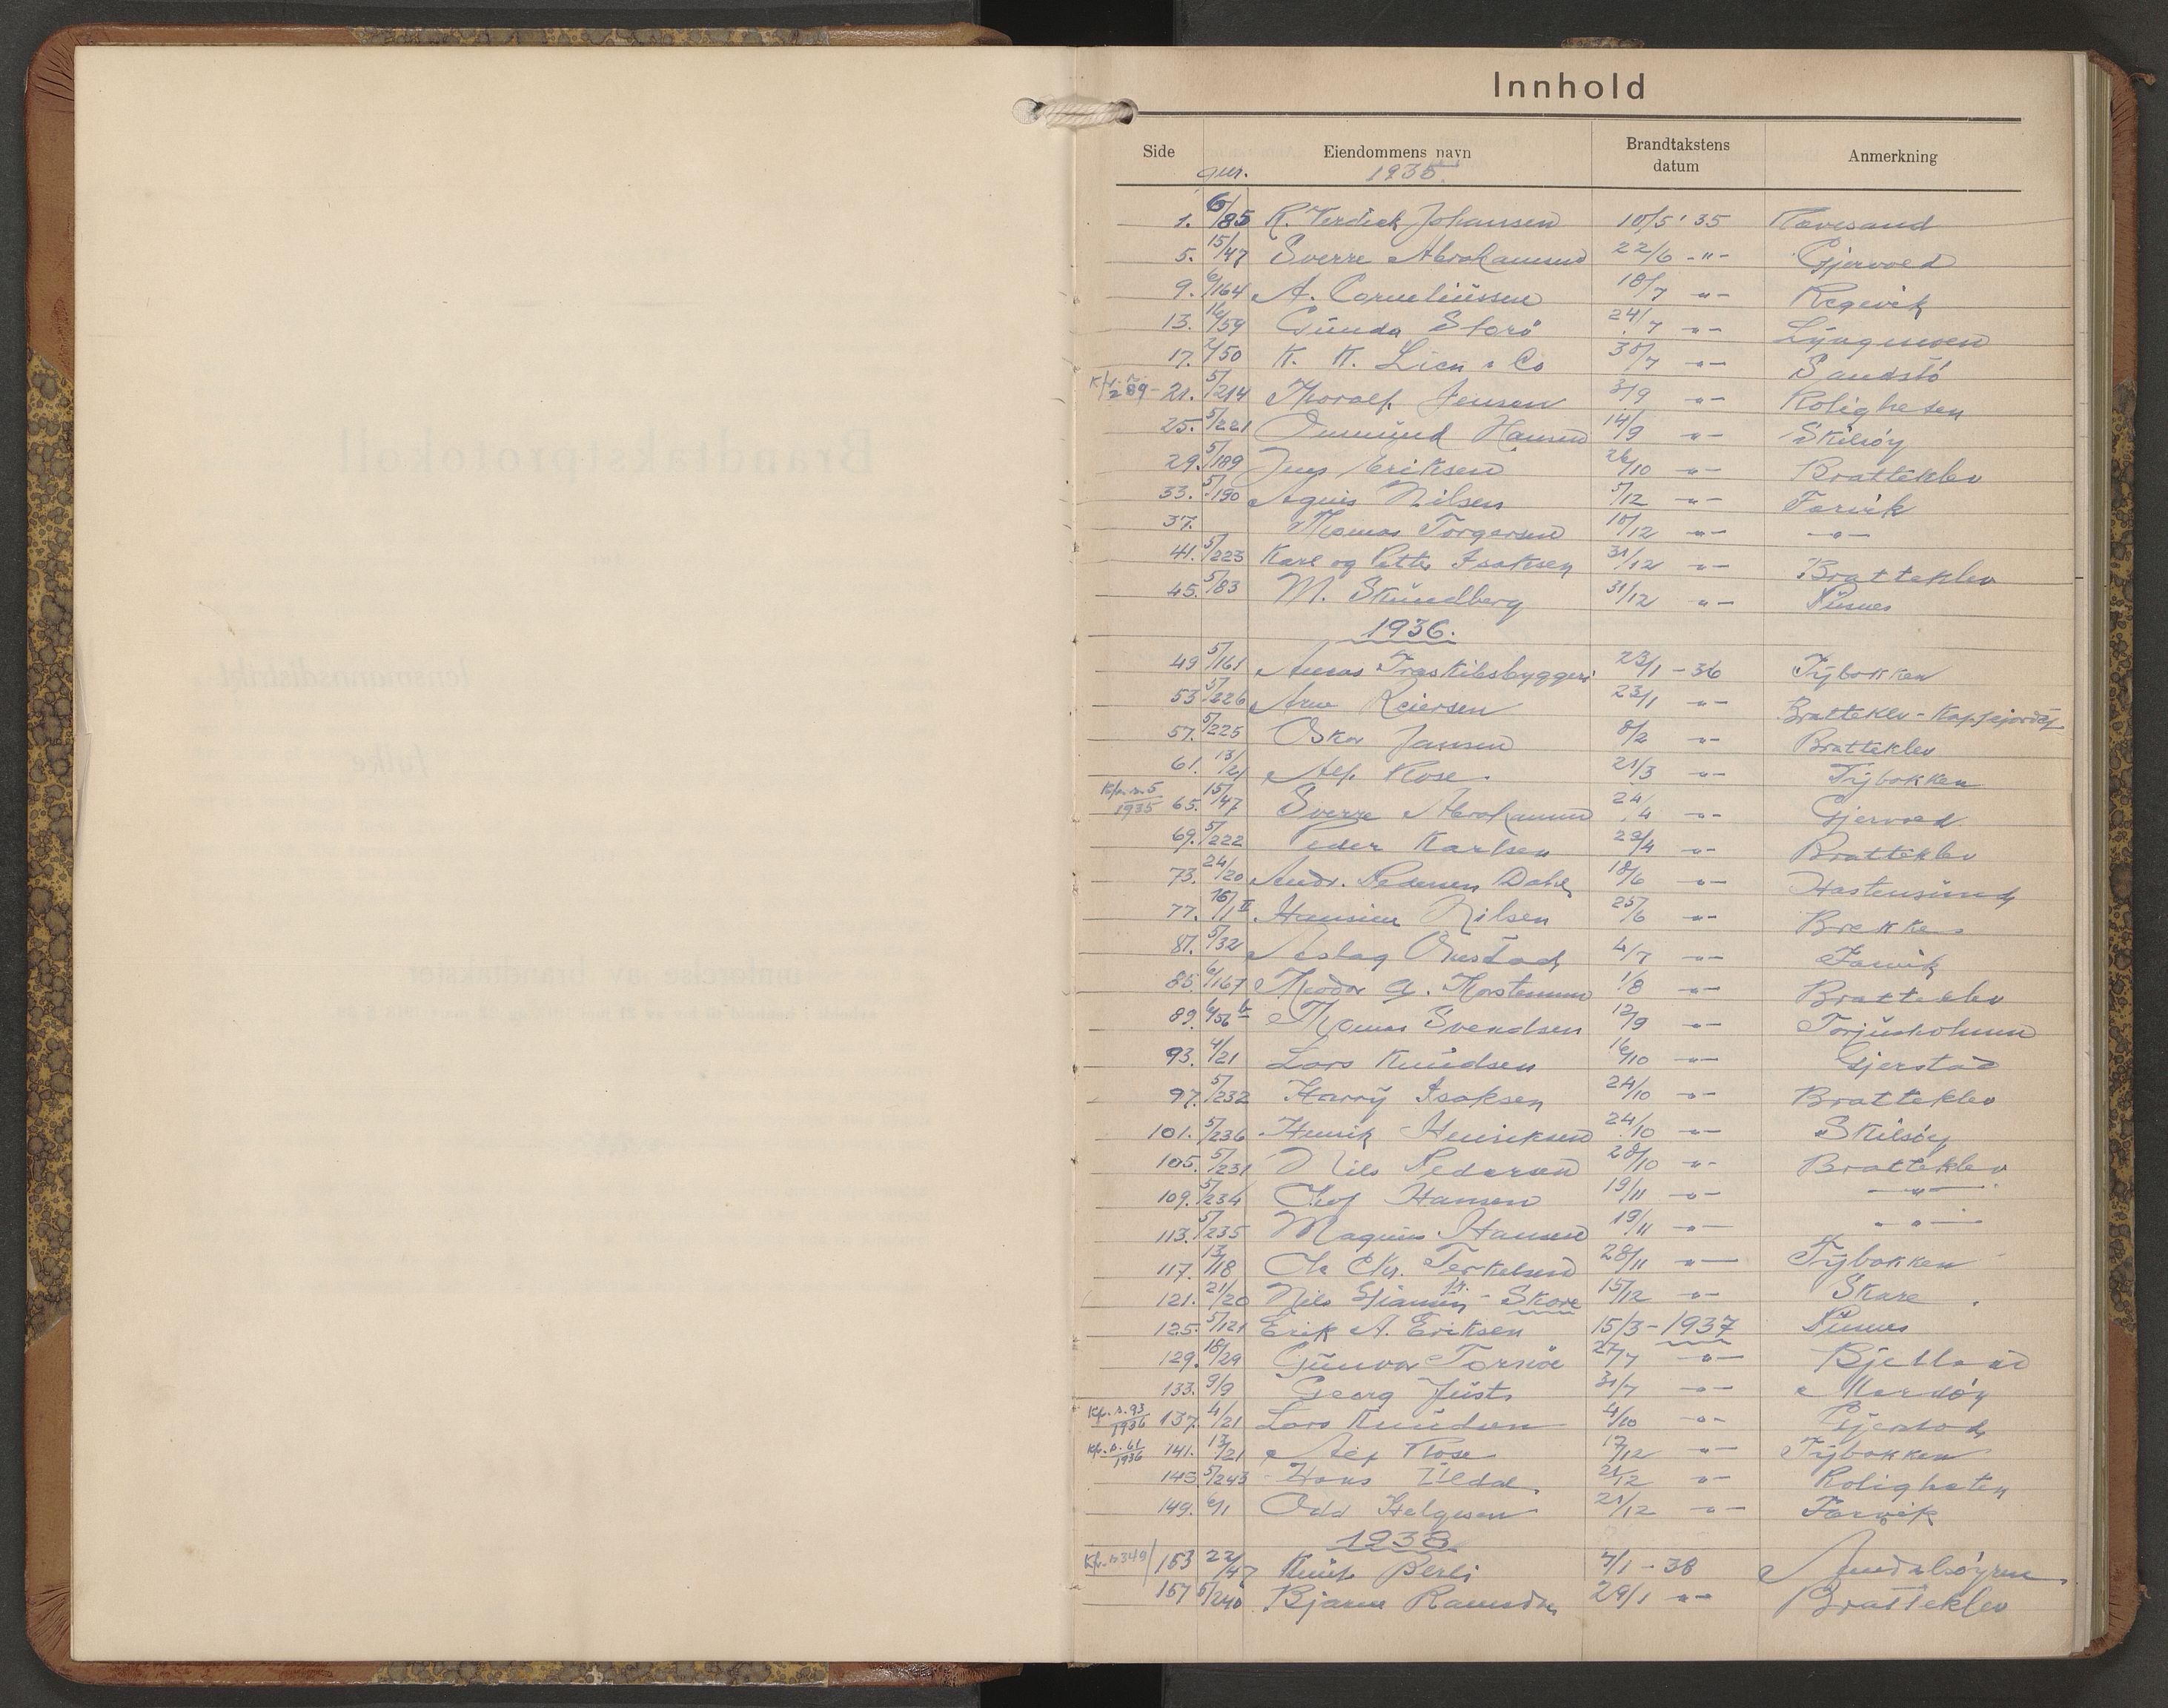 Innhold
Side gnr. Eiendommens navn Brandtakstens datum Anmerkning
1935.
1. 6/85 R. Verdick Johansen 10/5 '35 Kavesand
5. 15/47 Sverre Abrahamsen 22/6 -"- Gjervold
9. 6/164 A. Corneliussen 18/7 -"- Regevik
13. 16/59 Gunda Storø 24/7 -"-
17. 2/50 K. K. Lien & Co 30/7 -"- Sandstø
Kfr. s. 289 - 21. 5/214 Thoralf Jensen 3/9 -"- Roligheten
25. 5/221 Osmund Hansen 14/9 -"- Skilsøy
29. 5/189 Jens Eriksen 26/10 -"- Bratteklev
33. 5/190 Agnes Nilsen 5/12 -"- Færvik
37. Thomas Torgersen 10/12 -"- -"-
41. 5/223 Karl og Petter Isaksen 31/12 -"- Bratteklev
45. 5/83 M. Skundberg 31/12 -"- Pusnes
1936.
49 5/161 Amas Træskibsbyggeri 23/1 - 36 Tybakken
53 5/226 Arne Reiersen 23/1 -"- Bratteklev -
57. 5/225 Oskar Jansen 8/2 -"- Bratteklev
61. 13/21 Alf. Rose 21/3 -"- Tybakken
Kfr. s. 5 1935 65. 15/47 Sverre Abrahamsen 24/4 -"- Gjervold
69. 5/222 Peder Karlsen 29/4 -"- Bratteklev
73. 24/20 Andr. Pedersen Dahl 18/6 -"- Hastensund
77. 16/1 II Hansine Nilsen 25/6 -"- Brekka
81. 5/32 Aslag Ousdal 4/7 -"- Færvik
85. 6/167 Theodor G. Thorstensen 1/8 -"- Bratteklev
89. 6/56 b Thomas Svendsen 12/9 -"- Torjusholmen
93. 4/21 Lars Knudsen 16/10 -"- Gjerstad
97. 5/232 Harry Isaksen 24/10 -"- Bratteklev
101. 5/236 Henrik Henriksen 24/10 -"- Skilsøy
105. 5/231 Nils Pedersen 28/10 -"- Bratteklev
109. 5/234 Hansen 19/11 -"- -"-
113. 5/235 Magnus Hansen 19/11 -"- -"-
117. 13/118 Ole Chr. Terkelsen 28/11 -"- Tybakken
121. 21/20 Nils - Skare 15/12 -"- Skare
125. 5/121 Erik A. Eriksen 15/3 - 1937 Pusnes
129. 18/29 Gunvor Torsøe 27/7 -"- Bjelland
133. 9/9 Georg Just 31/7 -"- Merdøy
Kfr. s. 93 1936 137. 4/21 Lars Knudsen 4/10 -"- Gjerstad
Kfr. s. 61 1936 141. 13/21 Alf Rose 17/12 -"- Tybakken
145 5/243 Hans Uldal 21/12 -"- Roligheten
149. 6/1 Odd Helgesen 21/12 -"- Færvik
1938.
Kfr. s 349/ 153 22/47 Knut Berli 7/1 - 38
157 5/240 Bjarne Ramsdal 29/1 -"- Bratteklev